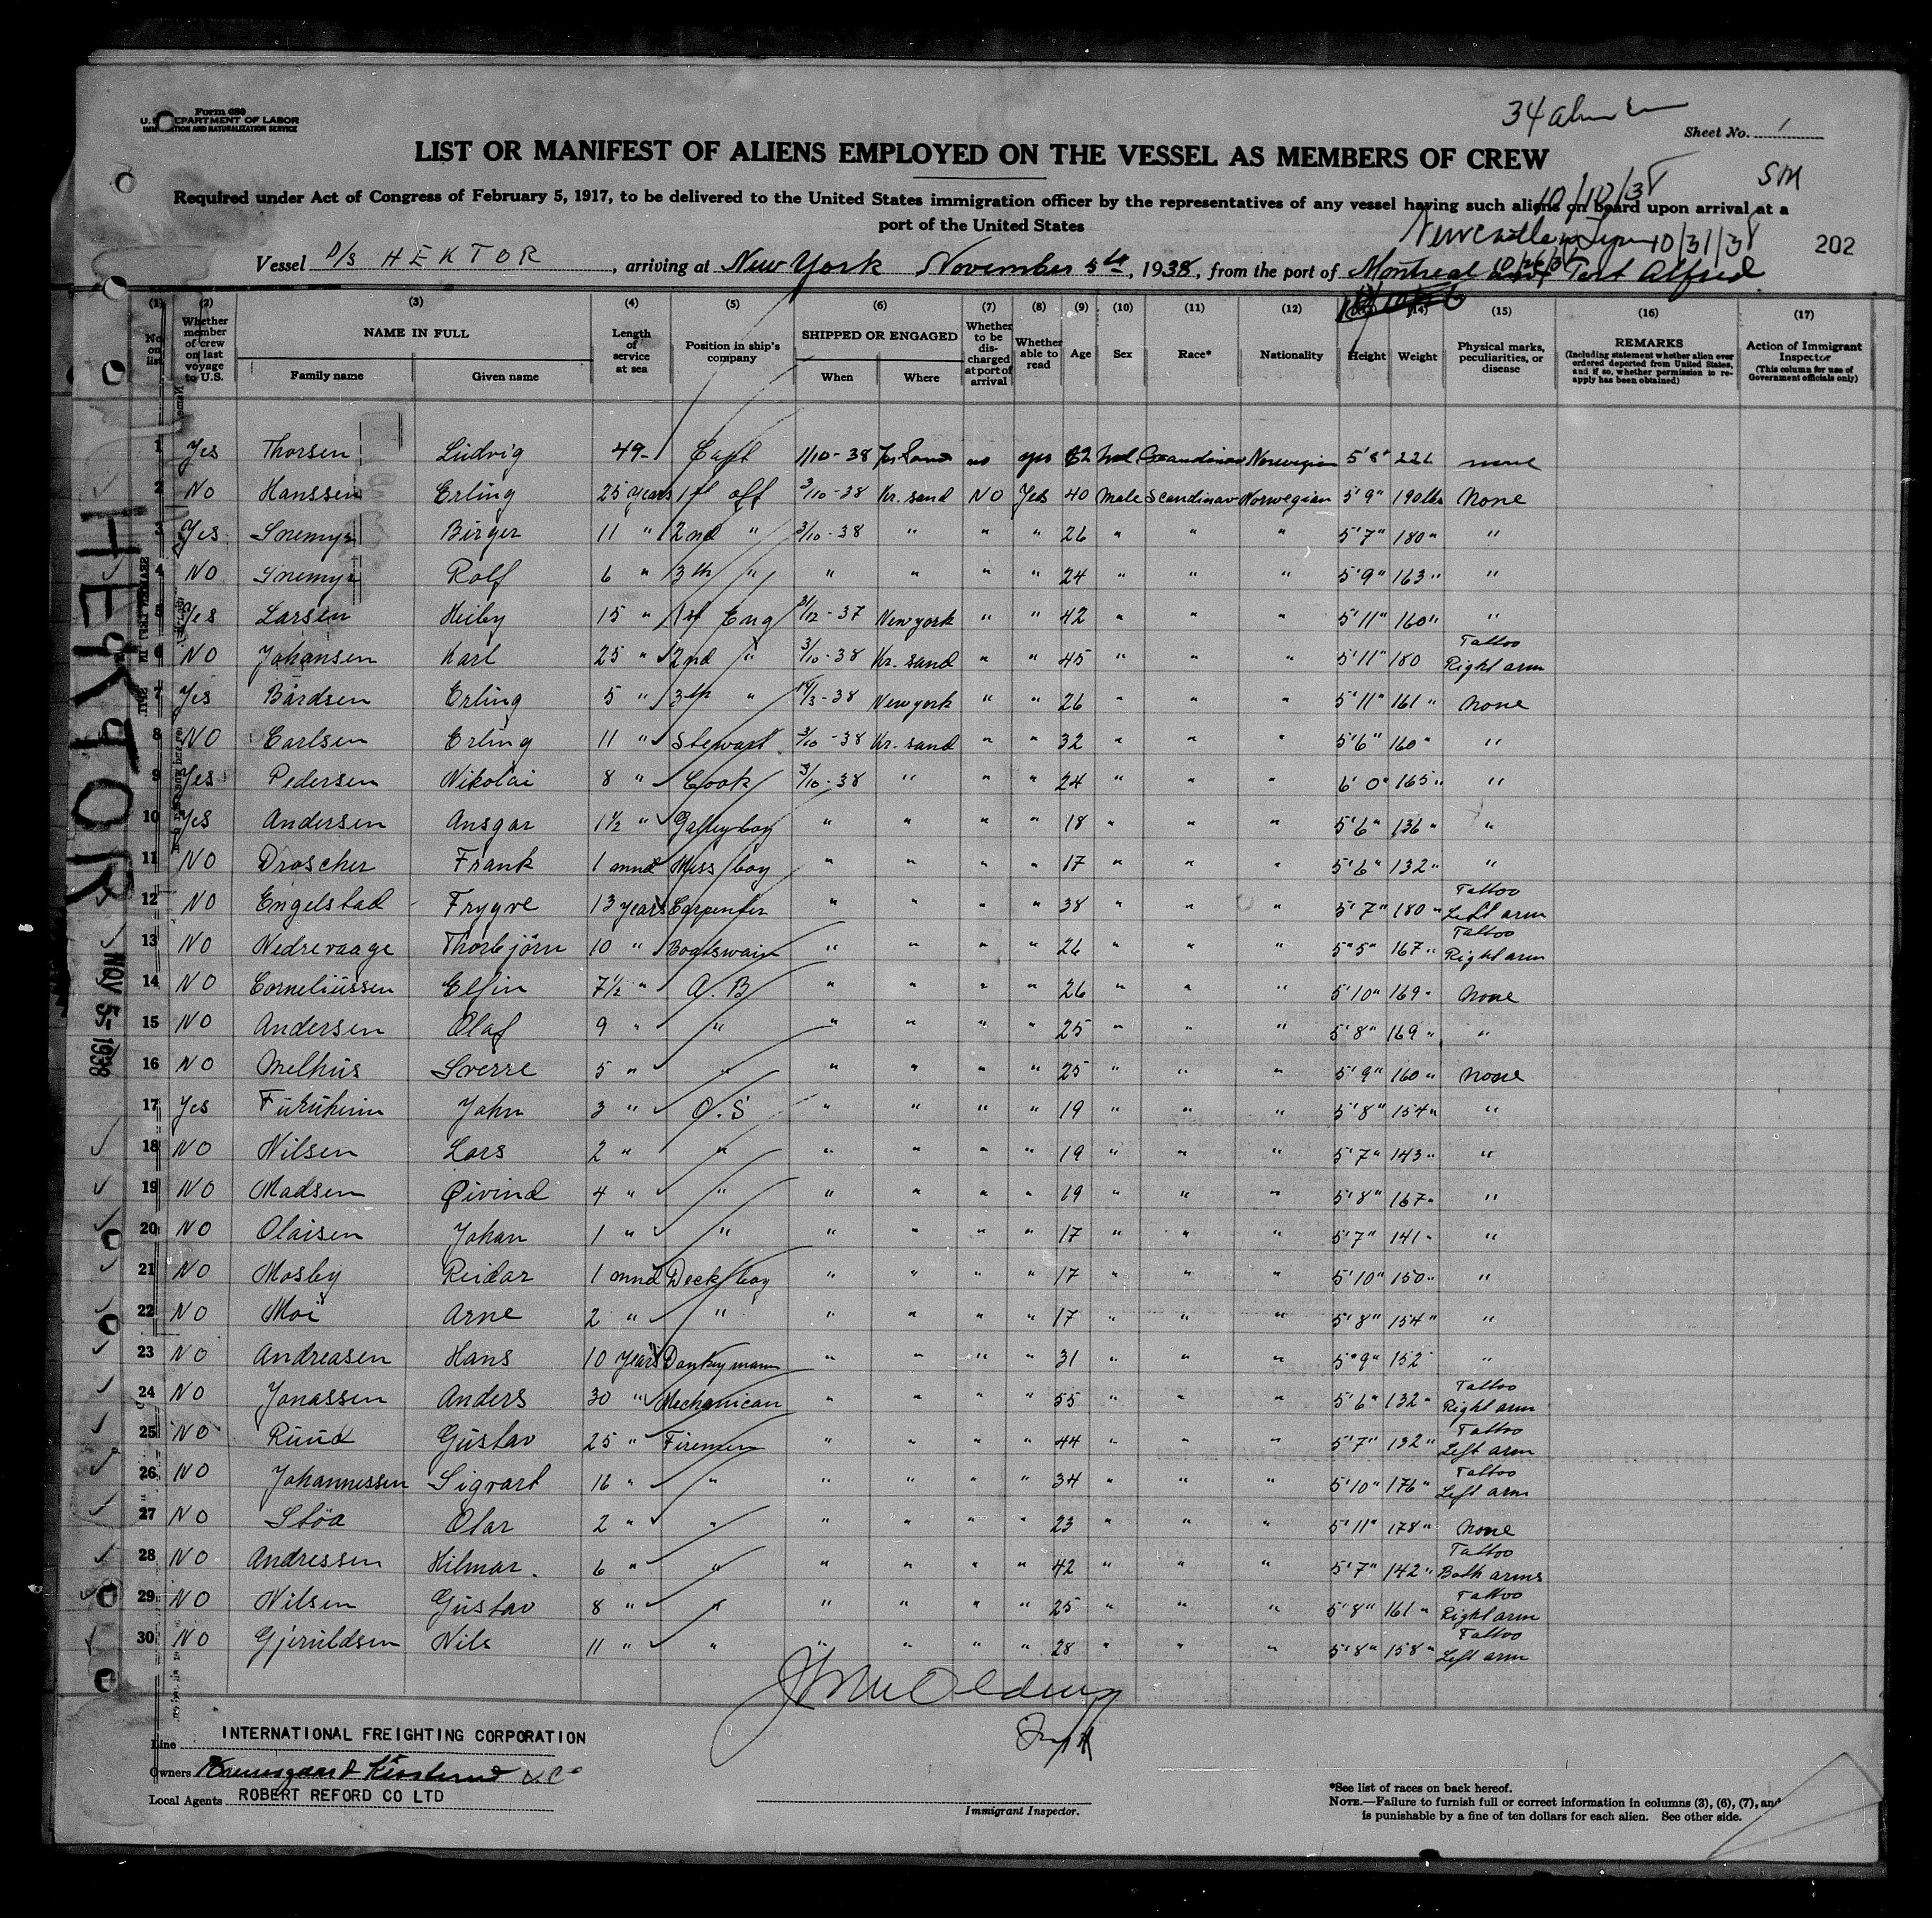 Form 680
U. S. DEPARTMENT OF LABOR
IMMIGRATION AND NATURALIZATION SERVICE
34
Sheet No. 1
LIST OR MANIFEST OF ALIENS EMPLOYED ON THE VESSEL AS MEMBERS OF CREW
SM
10/10/38
Required under Act of Congress of February 5, 1917, to be delivered to the United States immigration officer by the representatives of any vessel having such aliens on board upon arrival at a
port of the United States
10/31/38
202
Vessel D/S HEKTOR, arriving at New York November 5th, 1938, from the port of Montreal Port Alfred
(1) (2) (3) (4) (5) (6) (7) (8) (9) (10) (11) (12) (14) (15) (16) (17)
No. on list
Whether member of crew on last voyage to U.S.
NAME IN FULL
Family name Given name
Length of service at sea
Position in ship's company
SHIPPED OR ENGAGED
When Where
Whether to be discharged at port of arrival
Whether able to read
Age Sex Race* Nationality Height Weight
Physical marks, peculiarities, or disease
REMARKS
(Including statement whether alien ever ordered deported from United States, and if so, whether permission to reapply has been obtained)
Action of Immigrant Inspector
(This column for use of Government officials only)
1 Yes Thorsen Ludvig 49- Capt 1/10-38 Kr. Sand no yes 62 Mal Scandinav Norwegian 5'8" 226 none
2 No Hanssen Erling 25 years 1st off 3/10-38 Kr. sand NO Yes 40 Male Scandinav Norwegian 5'9" 190 lbs None
3 Yes Snemyr Birger 11 " 2nd " 3/10-38 " " " 26 " " " 5'7" 180 " "
4 NO Snemyr Rolf 6 " 3th " " " " " 24 " " " 5'9" 163 " "
5 Yes Larsen Heiby 15 " 1st Eng 31/12-37 New york " " 42 " " " 5'11" 160 " "
6 NO Johansen Karl 25 " 2nd " 3/10-38 Kr. sand " " 45 " " " 5'11" 180 Tattoo Right arm
7 Yes Bårdsen Erling 5 " 3th " 14/3-38 New york " " 26 " " " 5'11" 161 " None
8 NO Carlsen Erling 11 " Stewart 3/10-38 Kr. sand " " 32 " " " 5'6" 160 " "
9 Yes Pedersen Nikolai 8 " Cook 3/10-38 " " " 24 " " " 6'0" 165 " "
10 Yes Andersen Ansgar 1½ " Galleyboy " " " " 18 " " " 5'6" 136 " "
11 NO Droscher Frank 1 mnd Mess boy " " " " 17 " " " 5'6" 132 " "
12 NO Engelstad Trygve 13 years Carpenter " " " " 38 " " " 5'7" 180 " Tattoo Left arm
13 NO Nedrevaage Thorbjörn 10 " Boatswain " " " " 26 " " " 5"5" 167 " Tattoo Right arm
14 NO Corneliussen Elfin 7½ " A. B " " " " 26 " " " 5'10" 169 " None
15 NO Andersen Olaf 9 " " " " " " 25 " " " 5'8" 169 " "
16 NO Melhus Sverre 5 " " " " " " 25 " " " 5'9" 160 " None
17 Yes Furuheim John 3 " O. S " " " " 19 " " " 5'8" 154 " "
18 NO Nilsen Lars 2 " " " " " " 19 " " " 5'7" 143 " "
19 NO Madsen Øivind 4 " " " " " " 19 " " " 5'8" 167 " "
20 NO Olaisen Johan 1 " " " " " " 17 " " " 5'7" 141 " "
21 NO Mosby Reidar 1 mnd Deck boy " " " " 17 " " " 5'10" 150 " "
22 NO Moi Arne 2 " " " " " " 17 " " " 5'8" 154 " "
23 NO Andreasen Hans 10 years Donkeymann " " " " 31 " " " 5"9" 152 "
24 NO Jonassen Anders 30 " Mechanican " " " " 55 " " " 5'6" 132 " Tattoo Right arm
25 NO Ruud Gustav 25 " Firemen " " " " 44 " " " 5'7" 132 " Tattoo Left arm
26 NO Johannessen Sigvart 16 " " " " " " 34 " " " 5'10" 176 " Tattoo Left arm
27 NO Stöa Olav 2 " " " " " " 23 " " " 5'11" 178 " None
28 NO Andressen Hilmar. 6 " " " " " " 42 " " " 5'7" 142 " Tattoo Both arms
29 NO Nilsen Gustav 8 " " " " " " 25 " " " 5'8" 161 " Tattoo Right arm
30 NO Gjeruldsen Nils 11 " " " " " " 28 " " " 5'8" 158 " Tattoo Left arm
HEKTOR
NOV 5-1938
Line INTERNATIONAL FREIGHTING CORPORATION
Owners
Local Agents ROBERT REFORD CO LTD
Immigrant Inspector.
*See list of races on back hereof.
NOTE.—Failure to furnish full or correct information in columns (3), (6), (7), and
is punishable by a fine of ten dollars for each alien. See other side.